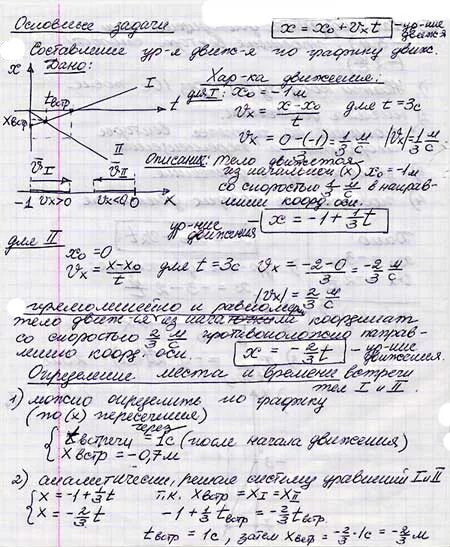 Основные задачи
x = x₀ + vₓt - ур-ние движ-я
Составление ур-я движ-я по графику движ.
Дано:
Хар-ка движение:
x
I
t встр
t
X встр
II
v̄I
v̄II
-1 vₓ>0 vₓ<0 0 x
для I: x₀ = -1м
vₓ = (x-x₀)/t для t = 3с
vₓ = (0-(-1))/3 = 1/3 м/с |vₓ| = 1/3 м/с
Описание: тело движется
из начальной (x) x₀ = -1м
со скоростью 1/3 м/с в направ-
лении коорд. оси.
ур-ние движения - x = -1 + 1/3 t
для II
x₀ = 0
vₓ = (x-x₀)/t для t = 3с vₓ = (-2-0)/3 = -2/3 м/с
|vₓ| = 2/3 м/с
прямолинейно и равномер
тело движ-ся из начальной координат
со скоростью 2/3 м/с противоположно направ-
лению коорд. оси. x = -2/3 t - ур-ние движения.
Определение места и времени встречи
тел I и II.
1) можно определить по графику
(по (x) пересечения)
через
{ t встречи = 1с (после начала движения)
X встр = -0,7м
2) аналитически, решая систему уравнений I и II
{ x = -1 + 1/3 t т.к. X встр = X I = X II
x = -2/3 t -1 + 1/3 t встр = -2/3 t встр.
t встр = 1с, затем X встр = -2/3 · 1с = -2/3 м